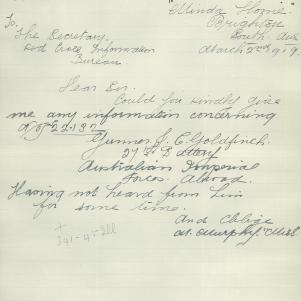 "Minda Home"
Brighton
South. Aus
March 2nd 1919.
To,
The Secretary.
Red Cross Information
Bureau.
Dear Sir.
Could you kindly give
me any information concerning
Gunner J. C. Goldfinch.
27th Battery
Australian Imperial
Forces. Abroad.
Having not heard from him
for some time.
And Oblige
M. Murphy. Miss